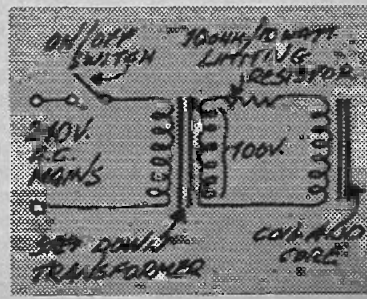 ON/OFF
SWITCH
10 OHM/10 WATT
LIMITING
RESISTOR
240V.
A.C.
MAINS
100V.
STEP DOWN
TRANSFORMER
COIL AND
CORE